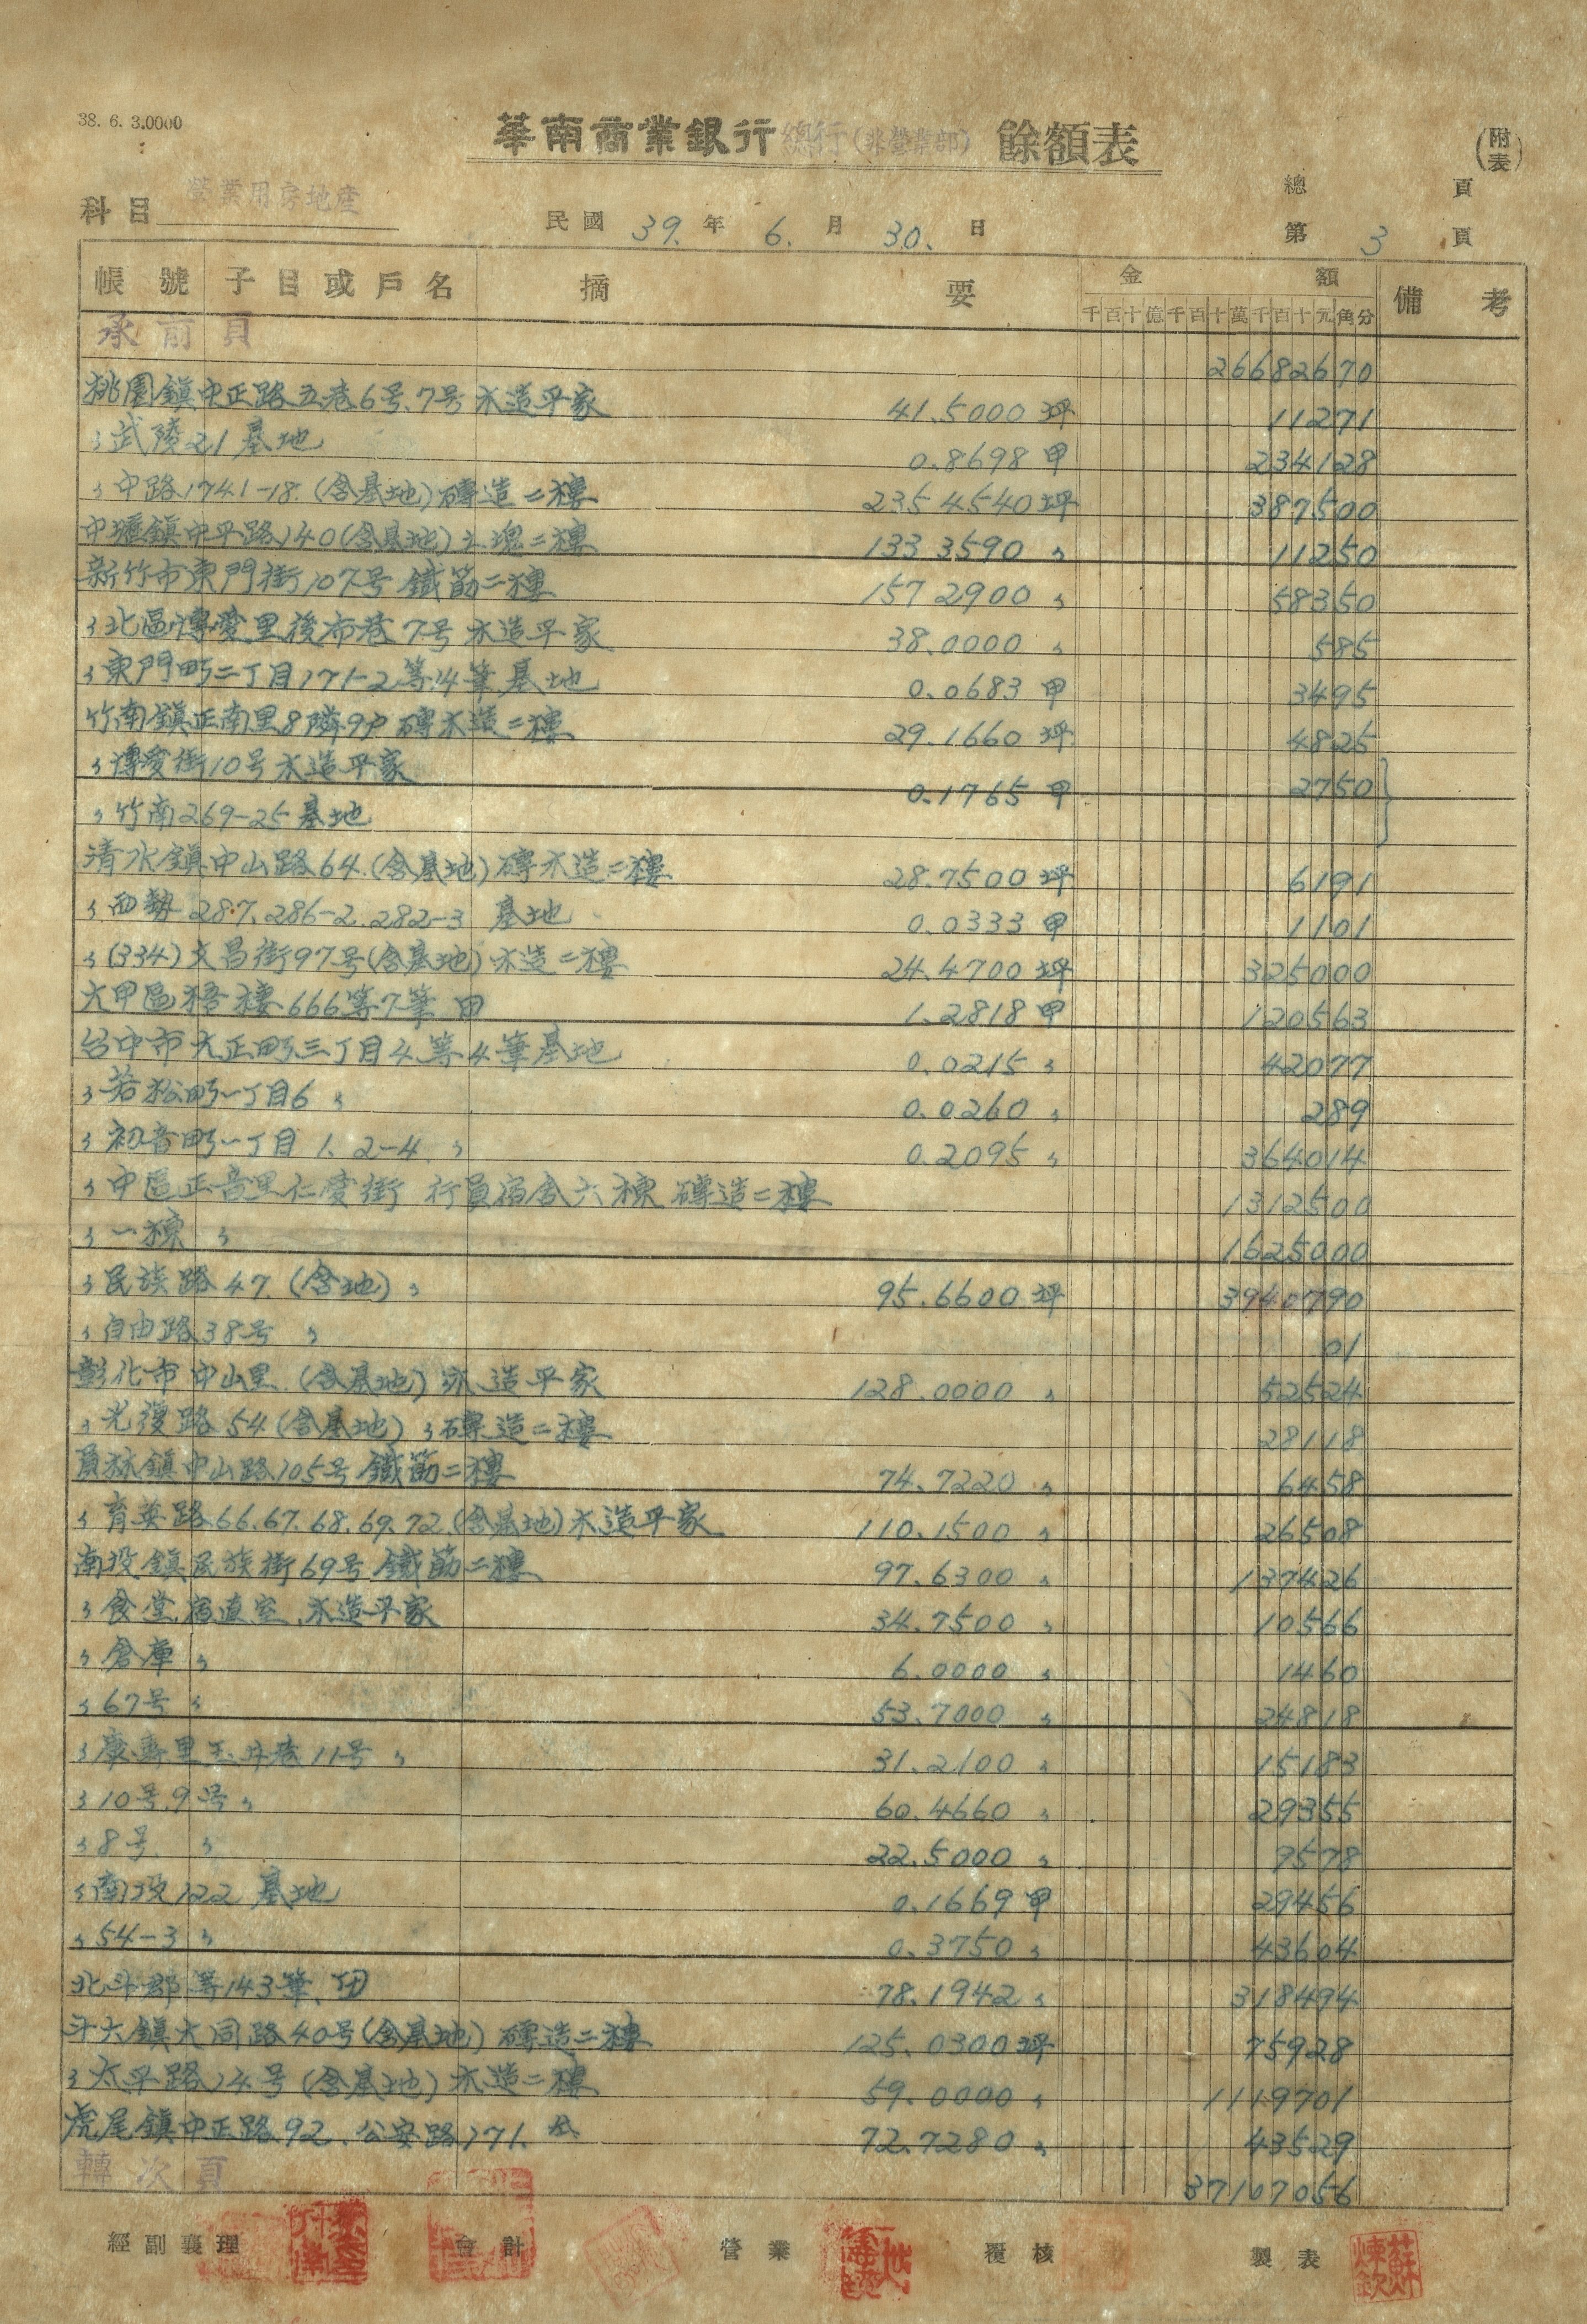 38. 6. 3.0000
華南商業銀行總行(非營業部) 餘額表 (附表)
科目 營業用房地產 民國 39. 年 6. 月 30. 日 總 頁 第 3 頁
帳號 子目或戶名 摘要 金額 備考
千百十億千百十萬千百十元角分
承前頁 26682670
桃園鎮中正路五巷6号.7号 木造平家 41.5000坪 11271
〃武陵21 基地 0.8698甲 234128
〃中路1741-18.(含基地)磚造二樓 235.4540坪 387500
中壢鎮中平路140(含基地)土塊二樓 133.3590〃 11250
新竹市東門街107号 鐵筋二樓 157.2900〃 58350
〃北區博愛里後布巷7号 木造平家 38.0000〃 585
〃東門町二丁目171-2等4筆 基地 0.0683甲 3495
竹南鎮正南里8隣9戶 磚木造二樓 29.1660坪 4825
〃博愛街10号 木造平家 0.1765甲 2750
〃竹南269-25基地
清水鎮中山路64.(含基地)磚木造二樓 28.7500坪 6191
〃西勢287.286-2.282-3 基地 0.0333甲 1101
〃(334)文昌街97号(含基地)木造二樓 24.4700坪 325000
大甲區梧棲666等7筆 田 1.2818甲 120563
台中市大正町三丁目4.等4筆基地 0.0215〃 42077
〃若松町一丁目6 〃 0.0260〃 289
〃初音町一丁目 1. 2-4. 〃 0.2095〃 364014
〃中區正音里仁愛街 行員宿舍六棟 磚造二樓 1312500
〃一棟 〃 1625000
〃民族路47.(含地)〃 95.6600坪 3940790
〃自由路38号 〃 01
彰化市中山里.(含基地)木造平家 128.0000〃 52524
〃光復路54(含基地)〃磚造二樓 28118
員林鎮中山路105号 鐵筋二樓 74.7220〃 6458
〃育英路66.67.68.69.72.(含基地)木造平家 110.1500〃 26508
南投鎮民族街69号 鐵筋二樓 97.6300〃 137426
〃食堂.宿直室.木造平家 34.7500〃 10566
〃倉庫〃 6.0000〃 1460
〃67号〃 53.7000〃 24818
〃康壽里玉井巷11号〃 31.2100〃 15183
〃10号.9号〃 60.4660〃 29355
〃8号.〃 22.5000〃 9578
〃南投122 基地 0.1669甲 29456
〃54-3〃 0.3750〃 43604
北斗郡 等143筆.田 78.1942〃 318494
斗六鎮大同路40号(含基地)磚造二樓 125.0300坪 75928
〃太平路24号(含基地)木造二樓 59.0000〃 1119701
虎尾鎮中正路92.公安路171. 72.7280〃 43529
轉次頁 37107056
經副襄理 會計 營業 覆核 製表 蘇煉欽